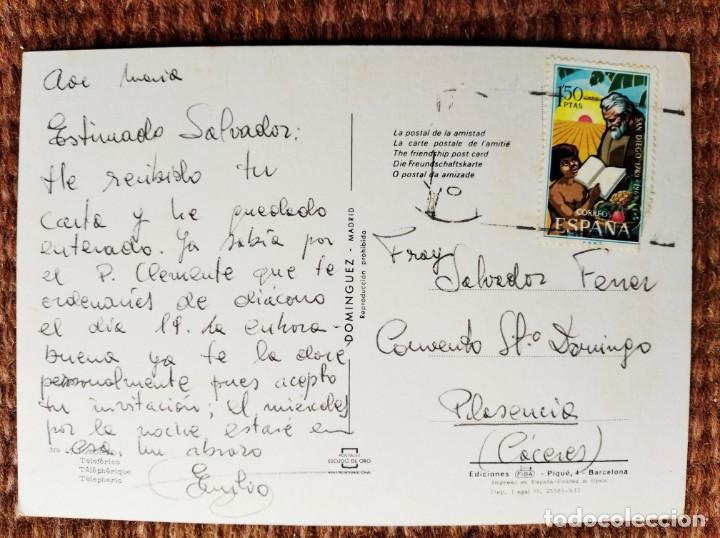 Ave María
Estimado Salvador:
He recibido tu
carta y he quedado
enterado. Ya sabía por
el P. Clemente que te
ordenaríes de diácono
el día 19. La enhora-
buena ya te la daré
personalmente pues acepto
tu invitación; el miércoles
por la noche estaré en
esa. Un abrazo
Emilio
Teleférico
Téléphérique
Telepheric
DOMINGUEZ - MADRID
Reproducción prohibida
POSTALES
ESCUDO DE ORO
La postal de la amistad
La carte postale de l'amitié
The friendship post card
Die Freundschaftskarte
O postal da amizade
1'50
PTAS
SAN DIEGO 1769-1969
CORREOS
ESPAÑA
Fray
Salvador Ferrer
Convento Sto. Domingo
Plasencia
(Cáceres)
Ediciones FISA - Piqué, 4 - Barcelona
Impreso en España-Printed in Spain
todocoleccion
todocoleccion.net